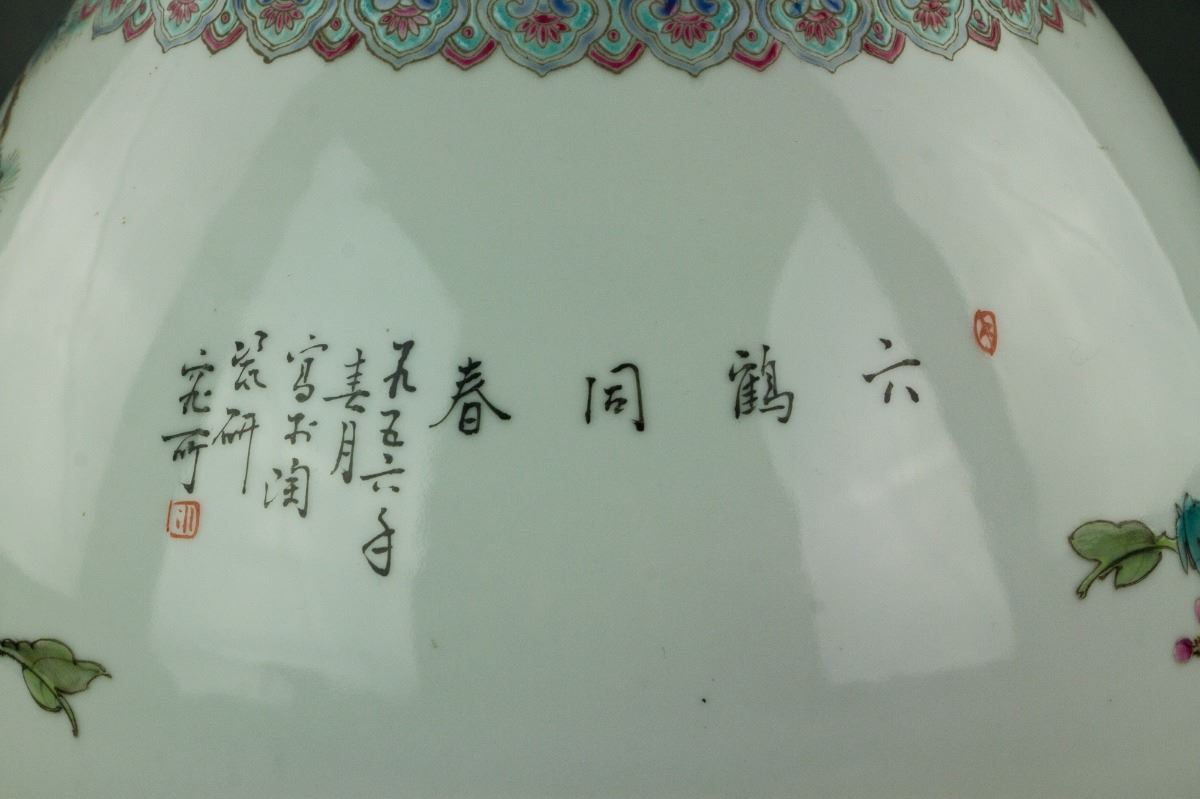 六鶴同春
一九五六年
春月
寫於陶
瓷研
究所